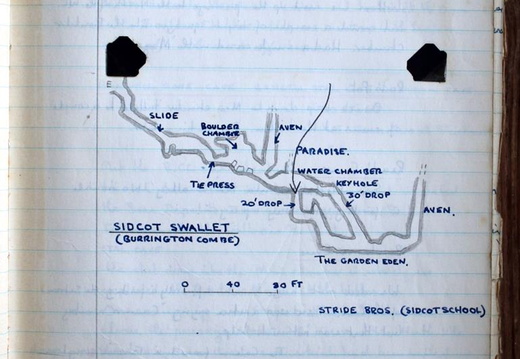 E
SLIDE
BOULDER
CHAMBER
AVEN
PARADISE.
WATER CHAMBER
KEYHOLE
30' DROP
TIE PRESS
20' DROP
AVEN.
SIDCOT SWALLET
(BURRINGTON COMBE)
THE GARDEN EDEN.
0 40 80 FT
STRIDE BROS. (SIDCOT SCHOOL)